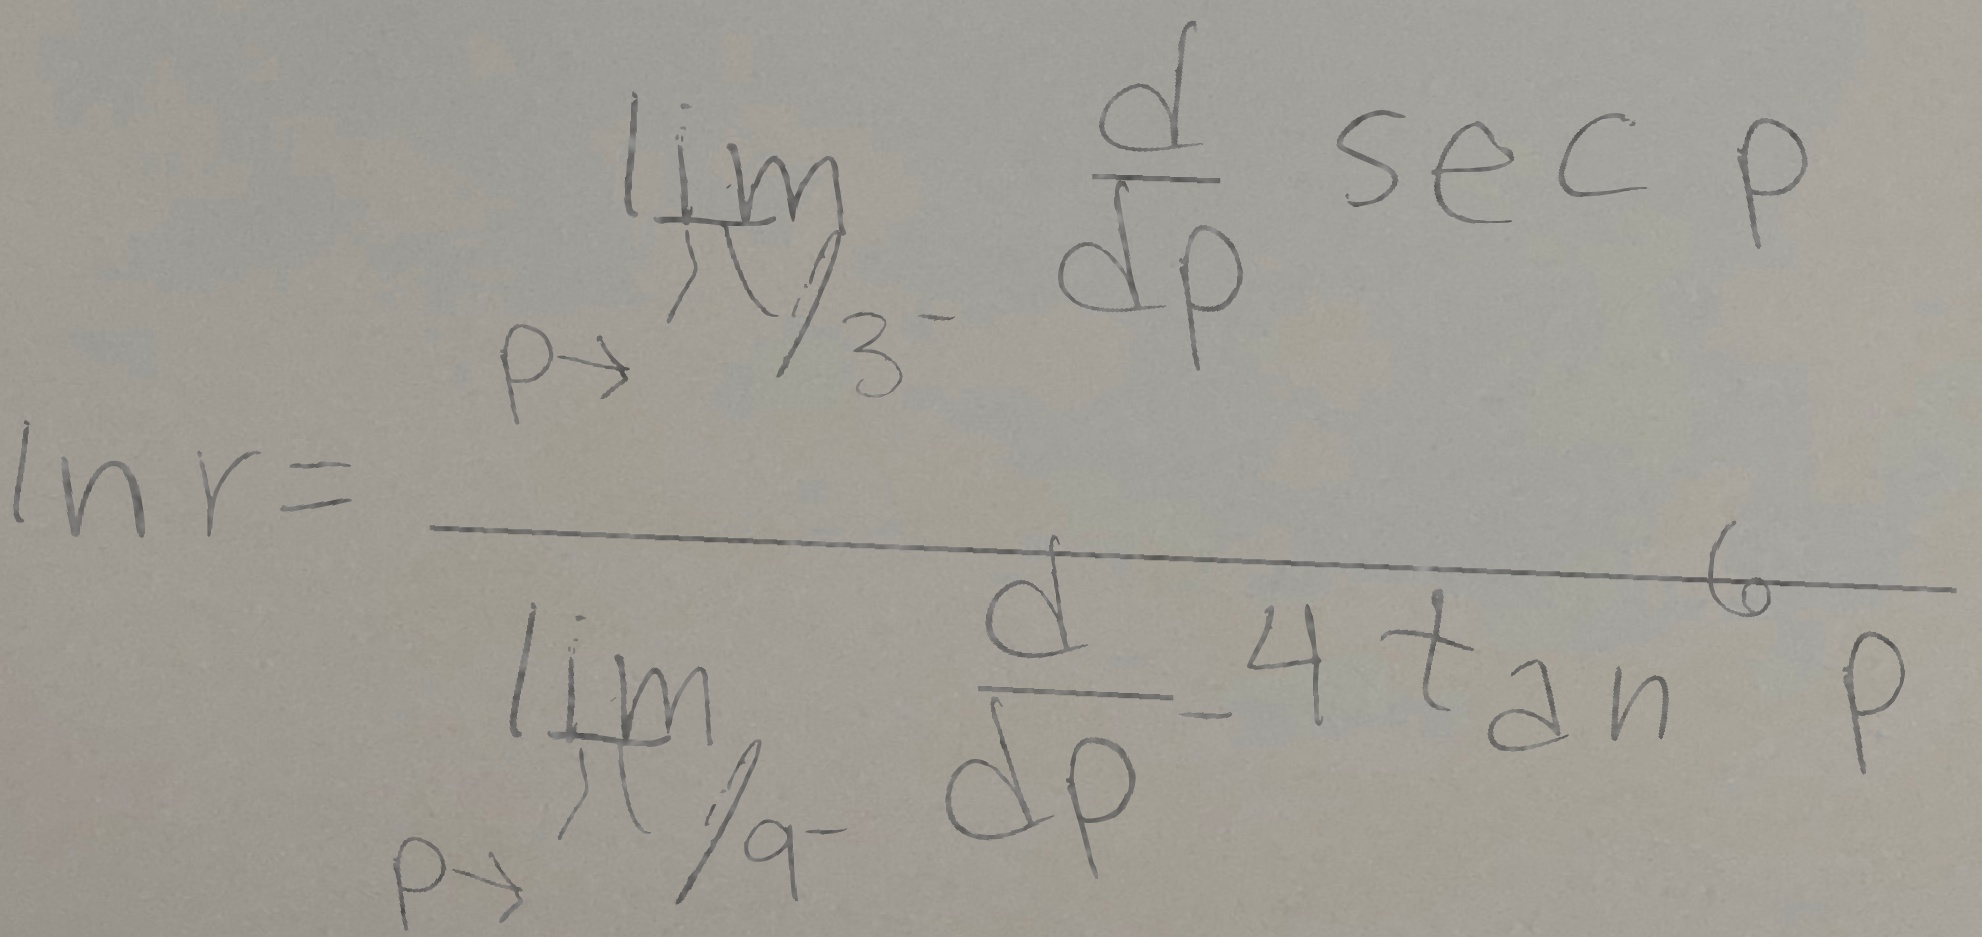 ln r = \frac{\lim_{p \to \pi/3^-} \frac{d}{dp} \sec p}{\lim_{p \to \pi/9^-} \frac{d}{dp} -4 \tan^6 p}